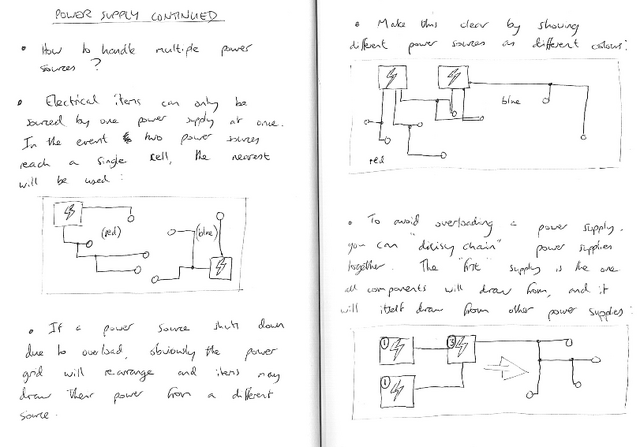 POWER SUPPLY CONTINUED
• How to handle multiple power
sources?
• Electrical items can only be
sourced by one power supply at once.
In the event two power sources
reach a single cell, the nearest
will be used:
(red)
(blue)
• If a power source shuts down
due to overload, obviously the power
grid will rearrange and items may
draw their power from a different
source.
• Make this clear by showing
different power sources as different colours:
blue
red
• To avoid overloading a power supply,
you can "daisy chain" power supplies
together. The "first" supply is the one
all components will draw from, and it
will itself draw from other power supplies:
1
3
1